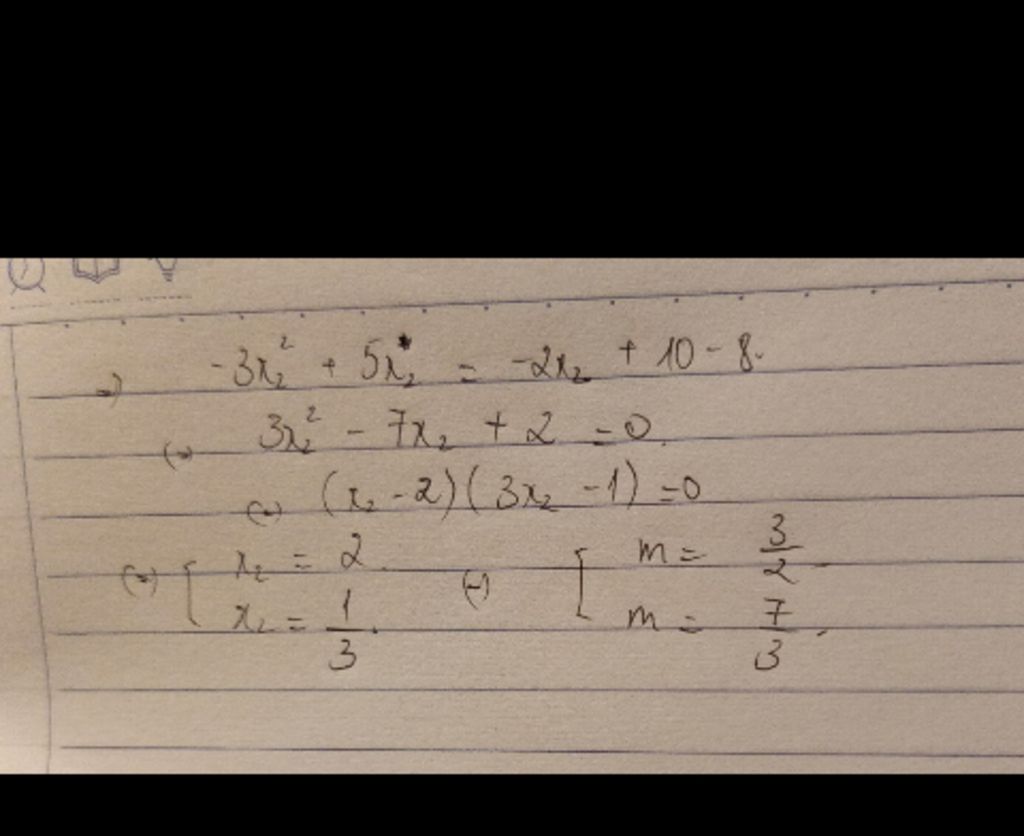 => -3x₂² + 5x₂ = -2x₂ + 10 - 8.
(=) 3x₂² - 7x₂ + 2 = 0.
(=) (x₂ - 2)(3x₂ - 1) = 0
(=) [ x₂ = 2. (=) [ m = 3/2
x₂ = 1/3. m = 7/3.